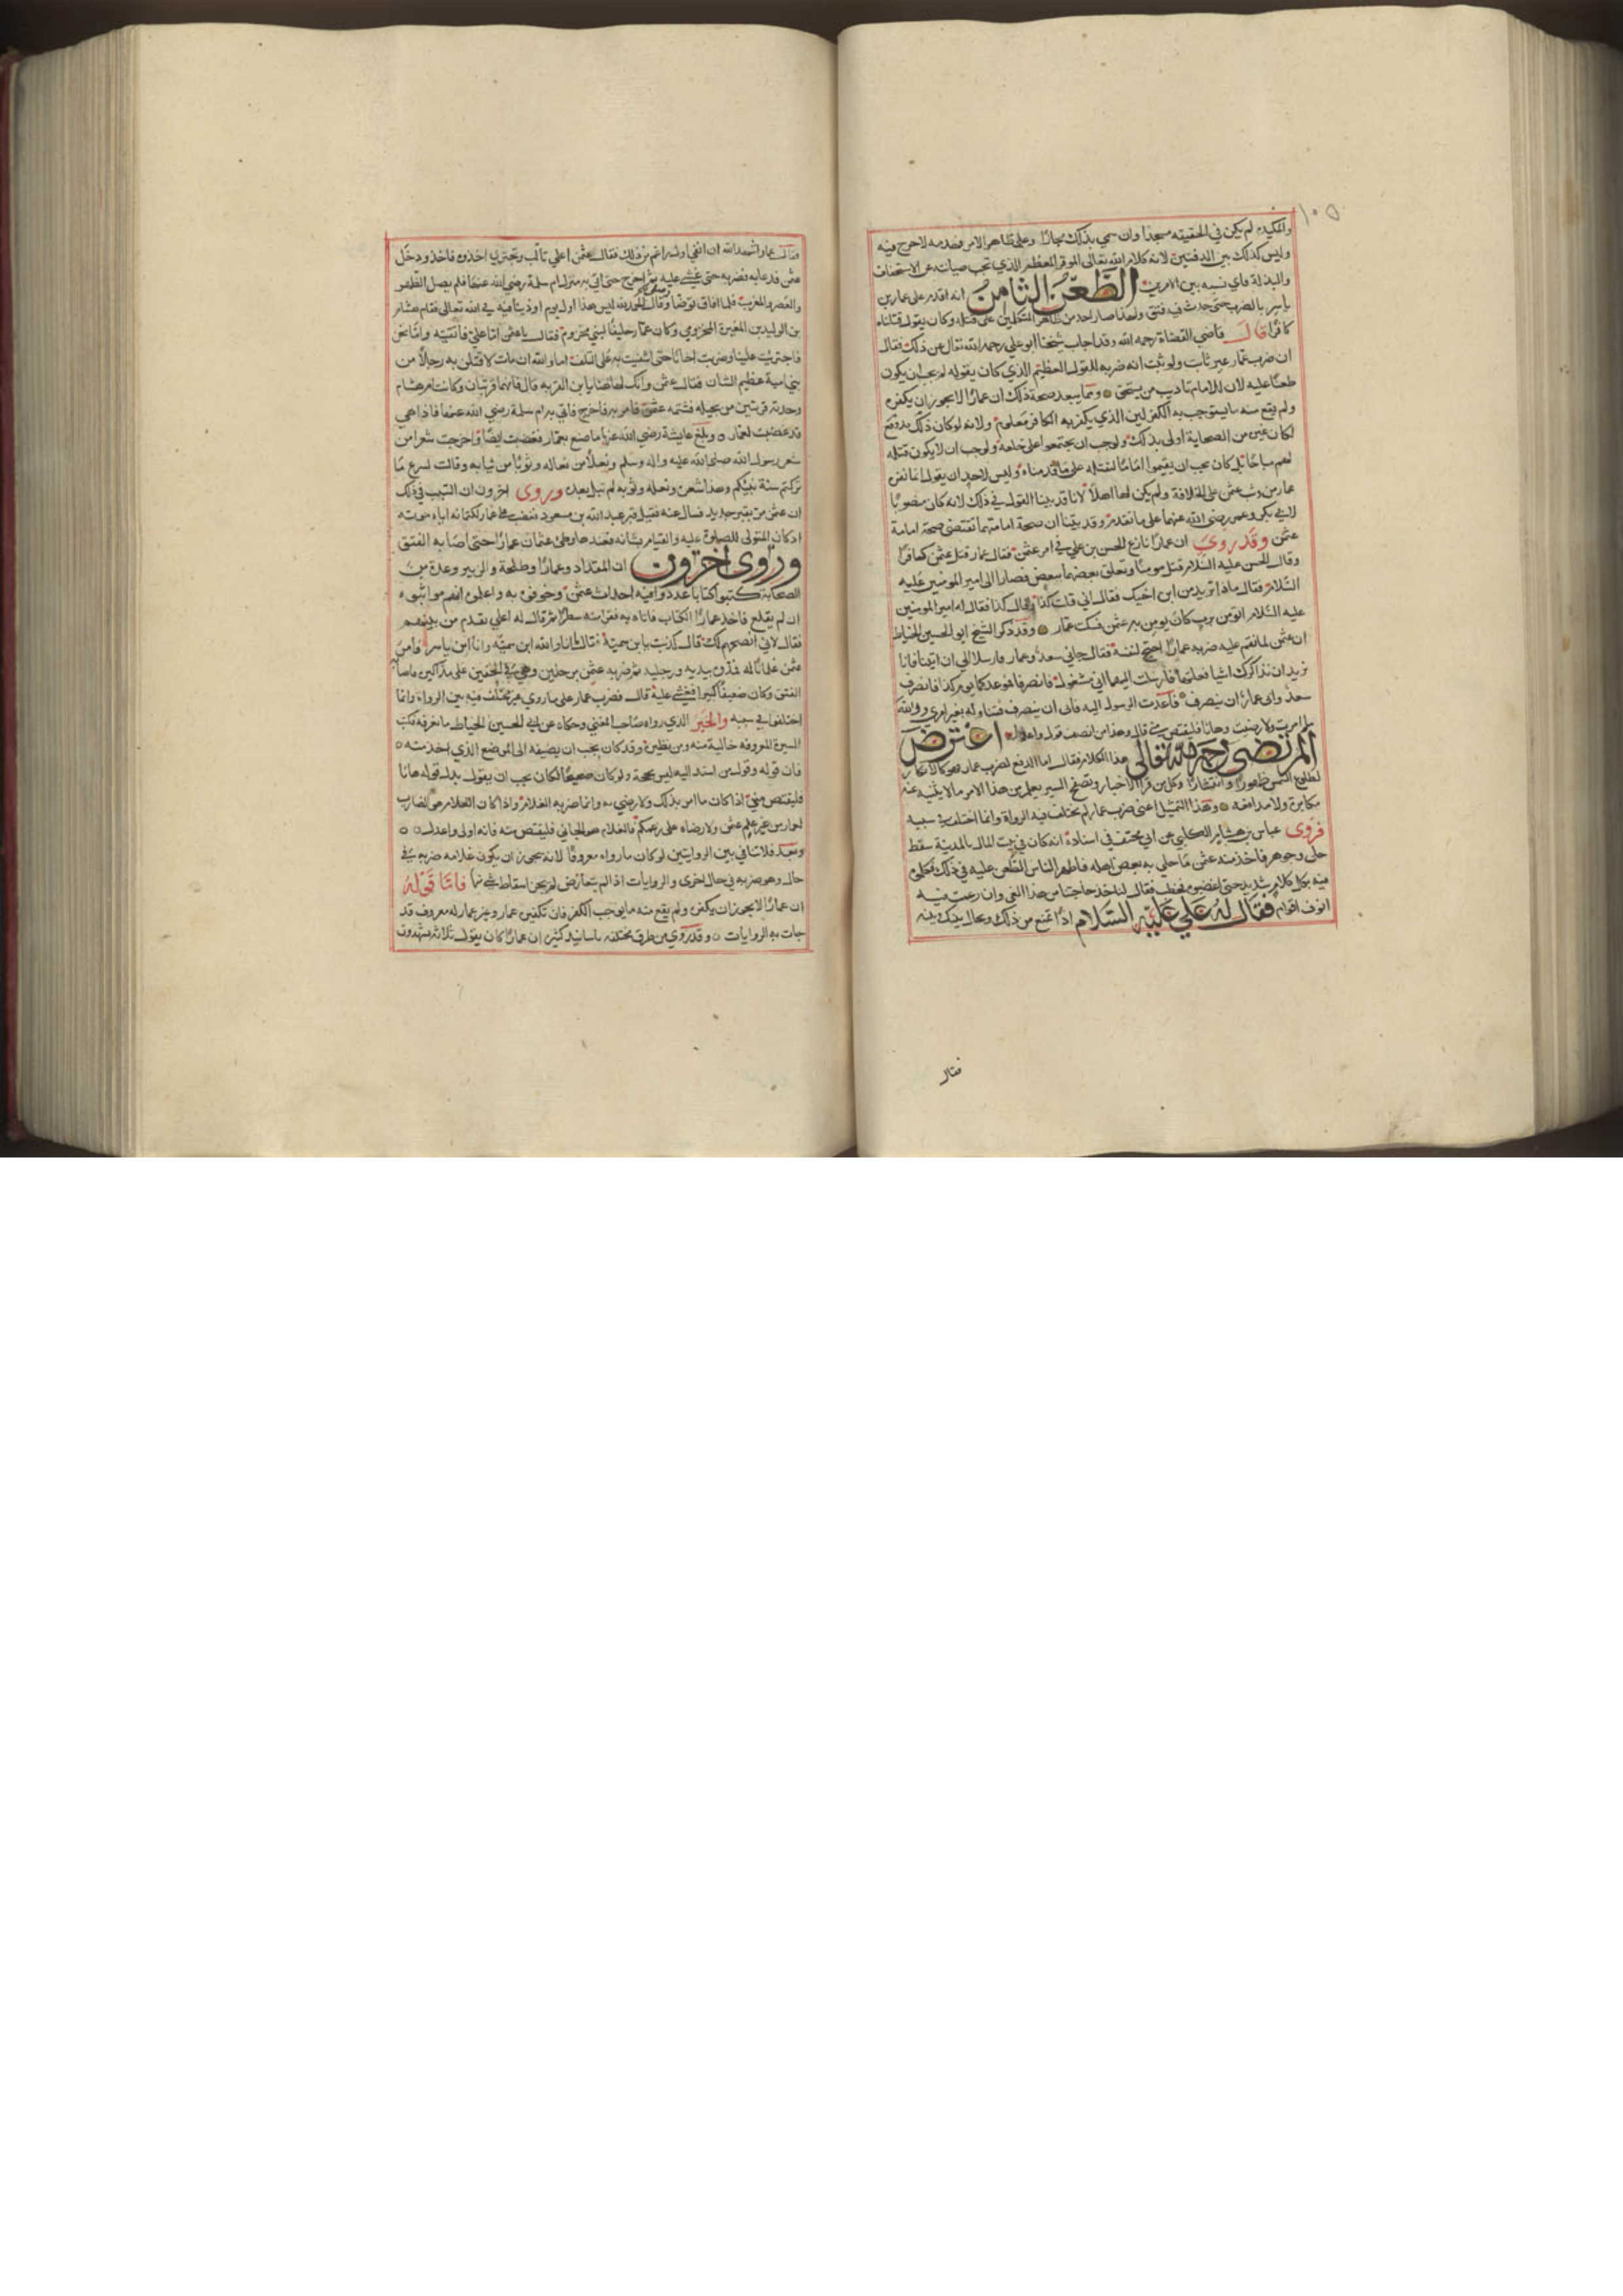 ١٠٥
والمكيدة لم يكن في الحقيقه مسجدا وان سمي بذلك مجازا وعلى ظاهر الامر فهدمه لاحرج فيه
وليس كذلك بين الدفتين لانه كلام الله تعالى الموقر المعظم الذي تجب صيانته عن الاستخفاف
والبذلة فاي نسبه بين الامرين الطعن الثامن انه اقدم على عمار بن
ياسر بالضرب حتى حدث فيه فتق ولهذا صار احد من ظاهر المتظلمين على قتله وكان يقول قتلناه
كافرا قال قاضي القضاة رحمه الله وقد اجاب شيخنا ابو علي رحمه الله تعالى عن ذلك فقال
ان ضرب عمار غير ثابت ولو ثبت انه ضربه للقول العظيم الذي كان يقوله لم يجب ان يكون
طعنا عليه لان للامام تاديب من يستحق ومما يبعد صحة ذلك ان عمارا لا يجوز ان يكفره
ولم يقع منه ما يستوجب به الكفر لان الذي يكفر به الكافر معلوم ولانه لو كان ذلك قد وقع
لكان غيره من الصحابة اولى بذلك ولوجب ان يجتمعوا على خلعه ولوجب ان لا يكون قتله
لهم مباحا بل كان يجب ان يقيموا اماما ليقتله على ما قدمناه وليس لاحد ان يقول انما كفره
عمار من وثب عثمن على الخلافة ولم يكن لها اهلا لانا قد بينا القول في ذلك لانه كان مصوبا
لابي بكر وعمر رضي الله عنهما على ما تقدم وقد بينا ان صحة امامتهما تقتضي صحة امامة
عثمن وقد روى ان عمارا نازع الحسن بن علي في امر عثمن فقال عمار قتل عثمن كافرا
وقال الحسن عليه السلام قتل مومنا وتعلق بعضهما ببعض فصارا الى امير المومنين عليه
السلام فقال ماذا تريد من ابن اخيك فقال اني قلت كذا وقال كذا فقال له امير المومنين
عليه السلام اتومن برب كان يومن به عثمن فسكت عمار وقد ذكر الشيخ ابو الحسين الخياط
ان عثمن لما نقم عليه ضربه عمارا احتج لنفسه فقال جاني سعد وعمار فارسلا الي ان ايتنا فانا
نريد ان نذاكرك اشيا فعلتها فارسلت اليهما اني مشغول فانصرفا فموعدكما يوم كذا فانصرف
سعد وابى عمار ان ينصرف فاعدت الرسول اليه فابى ان ينصرف فتناوله بغير امري ووالله
ما امرت ولا رضيت وها انا فليقتص مني قال وهذا من انصف قول واعدله اعترض
المرتضى رحمه الله تعالى هذا الكلام فقال اما الدفع لضرب عمار فهو كالانكار
لطلوع الشمس ظهورا وانتشارا وكل من قرا الاخبار وتصفح السير يعلم من هذا الامر ما لا يثنيه عنه
مكابرة ولا مدافعه وهذا الفعل اعني ضرب عمار لم يختلف فيه الرواة وانما اختلفوا في سببه
فروى عباس بن هشام الكلبي عن ابي مخنف في اسناده انه كان في بيت المال بالمدينة سفط
حلى وجوهر فاخذ منه عثمن ما حلي به بعض اهله فاظهر الناس الطعن عليه في ذلك وكلموه
فيه بكل كلام شديد حتى اغضبوه فخطب فقال لناخذن حاجتنا من هذا الفي وان رغمت فيه
انوف اقوام فقال له علي عليه السلام اذا تمنع من ذلك ويحال بينك وبينه
فقال
فقال عمار اشهد الله ان انفي اول راغم من ذلك فقال عثمن اعلي تالب وتجترئ اخذوه فاخذ ودخل
عثمن فدعا به فضربه حتى غشي عليه ثم اخرج حتى اتي به منزل ام سلمة رضي الله عنها فلم يصل الظهر
والعصر والمغرب فلما افاق توضا وصلى وقال الحمد لله ليس هذا اول يوم اوذينا فيه في الله تعالى فقام هشام
بن الوليد بن المغيرة المخزومي وكان عمار حليفا لبني مخزوم فقال يا عثمن اما علي فاتقيته واما نحن
فاجتريت علينا وضربت اخانا حتى اشفيت به على التلف اما والله ان مات لاقتلن به رجلا من
بني امية عظيم الشان فقال عثمن وانك لهاهنا يا بن القسرية قال فانهما قسريتان وكانت ام هشام
وجدته قسريتين من بجيله فشتمه عثمن فامر به فاخرج فاتي به ام سلمة رضي الله عنها فاذا هي
قد غضبت لعمار وبلغ عايشة رضي الله عنها ما صنع بعمار فغضبت ايضا واخرجت شعرا من
شعر رسول الله صلى الله عليه واله وسلم ونعلا من نعاله وثوبا من ثيابه وقالت لسرع ما
تركتم سنة نبيكم وهذا شعره ونعله وثوبه لم تبل بعد وروى اخرون ان السبب في ذلك
ان عثمن مر بقبر جديد فسال عنه فقيل قبر عبد الله بن مسعود فغضب على عمار لكتمانه اياه موته
اذ كان المتولى للصلوة عليه والقيام بشانه فعندها وطئ عثمان عمارا حتى اصابه الفتق
وروى اخرون ان المقداد وعمارا وطلحة والزبير وعدة من
الصحابة كتبوا كتابا عددوا فيه احداث عثمن وخوفوه به واعلموه انهم مواثبوه
ان لم يقلع فاخذ عمار الكتاب فاتاه به فقرا منه سطرا ثم قال له اعلي تقدم من بينهم
فقال لاني انصحهم لك قال كذبت يا بن سمية فقال انا والله ابن سمية وانا ابن ياسر فامر
عثمن غلمانا له فمدوا بيديه ورجليه ثم ضربه عثمن برجليه وهي في الخفين على مذاكيره فاصابه
الفتق وكان ضعيفا كبيرا فغشي عليه قال فضرب عمار على ما روي غير مختلف فيه بين الرواة وانما
اختلفوا في سببه والخبر الذي رواه صاحب المغني وحكاه عن ابي الحسين الخياط ما نعرفه وكتب
السيرة المعروفه خالية منه ومن نظيره وقد كان يجب ان يضيفه الى الموضع الذي اخذ منه
فان قوله وقول من اسند اليه ليس بحجة ولو كان صحيحا لكان يجب ان يقول بدل قوله ها انا
فليقتص مني اذا كان ما امر بذلك ولا رضي به وانما ضربه الغلام واذا كان الغلام هو الضارب
لعمار من غير علم عثمن ولا رضاه على زعمكم فالغلام هو الجاني فليقتص منه فانه اولى واعدل
وبعد فلا تنافي بين الروايتين لو كان ما رواه معروفا لانه يجوز ان يكون غلامه ضربه في
حال وهو ضربه في حال اخرى والروايات اذا لم يتعارض لم يجز اسقاط شي منها فاما قوله
ان عمارا لا يجوز ان يكفره ولم يقع منه ما يوجب الكفر فان تكفير عمار وغير عمار له معروف قد
جات به الروايات وقد روي من طرق مختلفه باسانيد كثيره ان عمارا كان يقول ثلاثة يشهدون